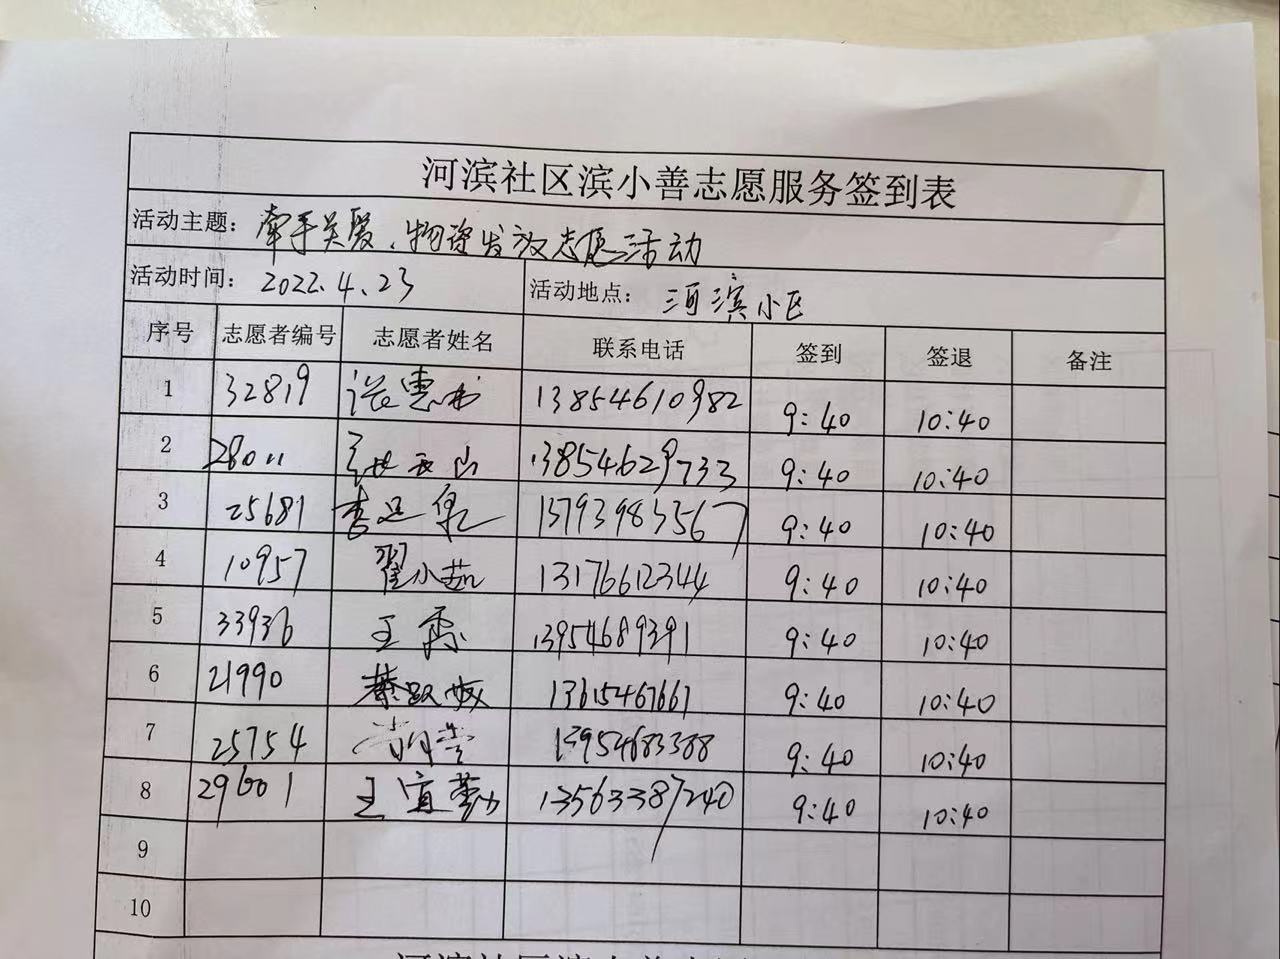 河滨社区滨小善志愿服务签到表
活动主题: 牵手关爱、物资发放志愿活动
活动时间: 2022.4.23 活动地点: 河滨小区
序号 志愿者编号 志愿者姓名 联系电话 签到 签退 备注
1 32819 张惠 13854610982 9:40 10:40
2 28011 13854629733 9:40 10:40
3 25681 李 9:40 10:40
4 10957 翟小茹 13176612344 9:40 10:40
5 33936 王霞 13954689391 9:40 10:40
6 21990 蔡 13615467667 9:40 10:40
7 25754 13954683388 9:40 10:40
8 29601 王宜勤 13563387240 9:40 10:40
9
10